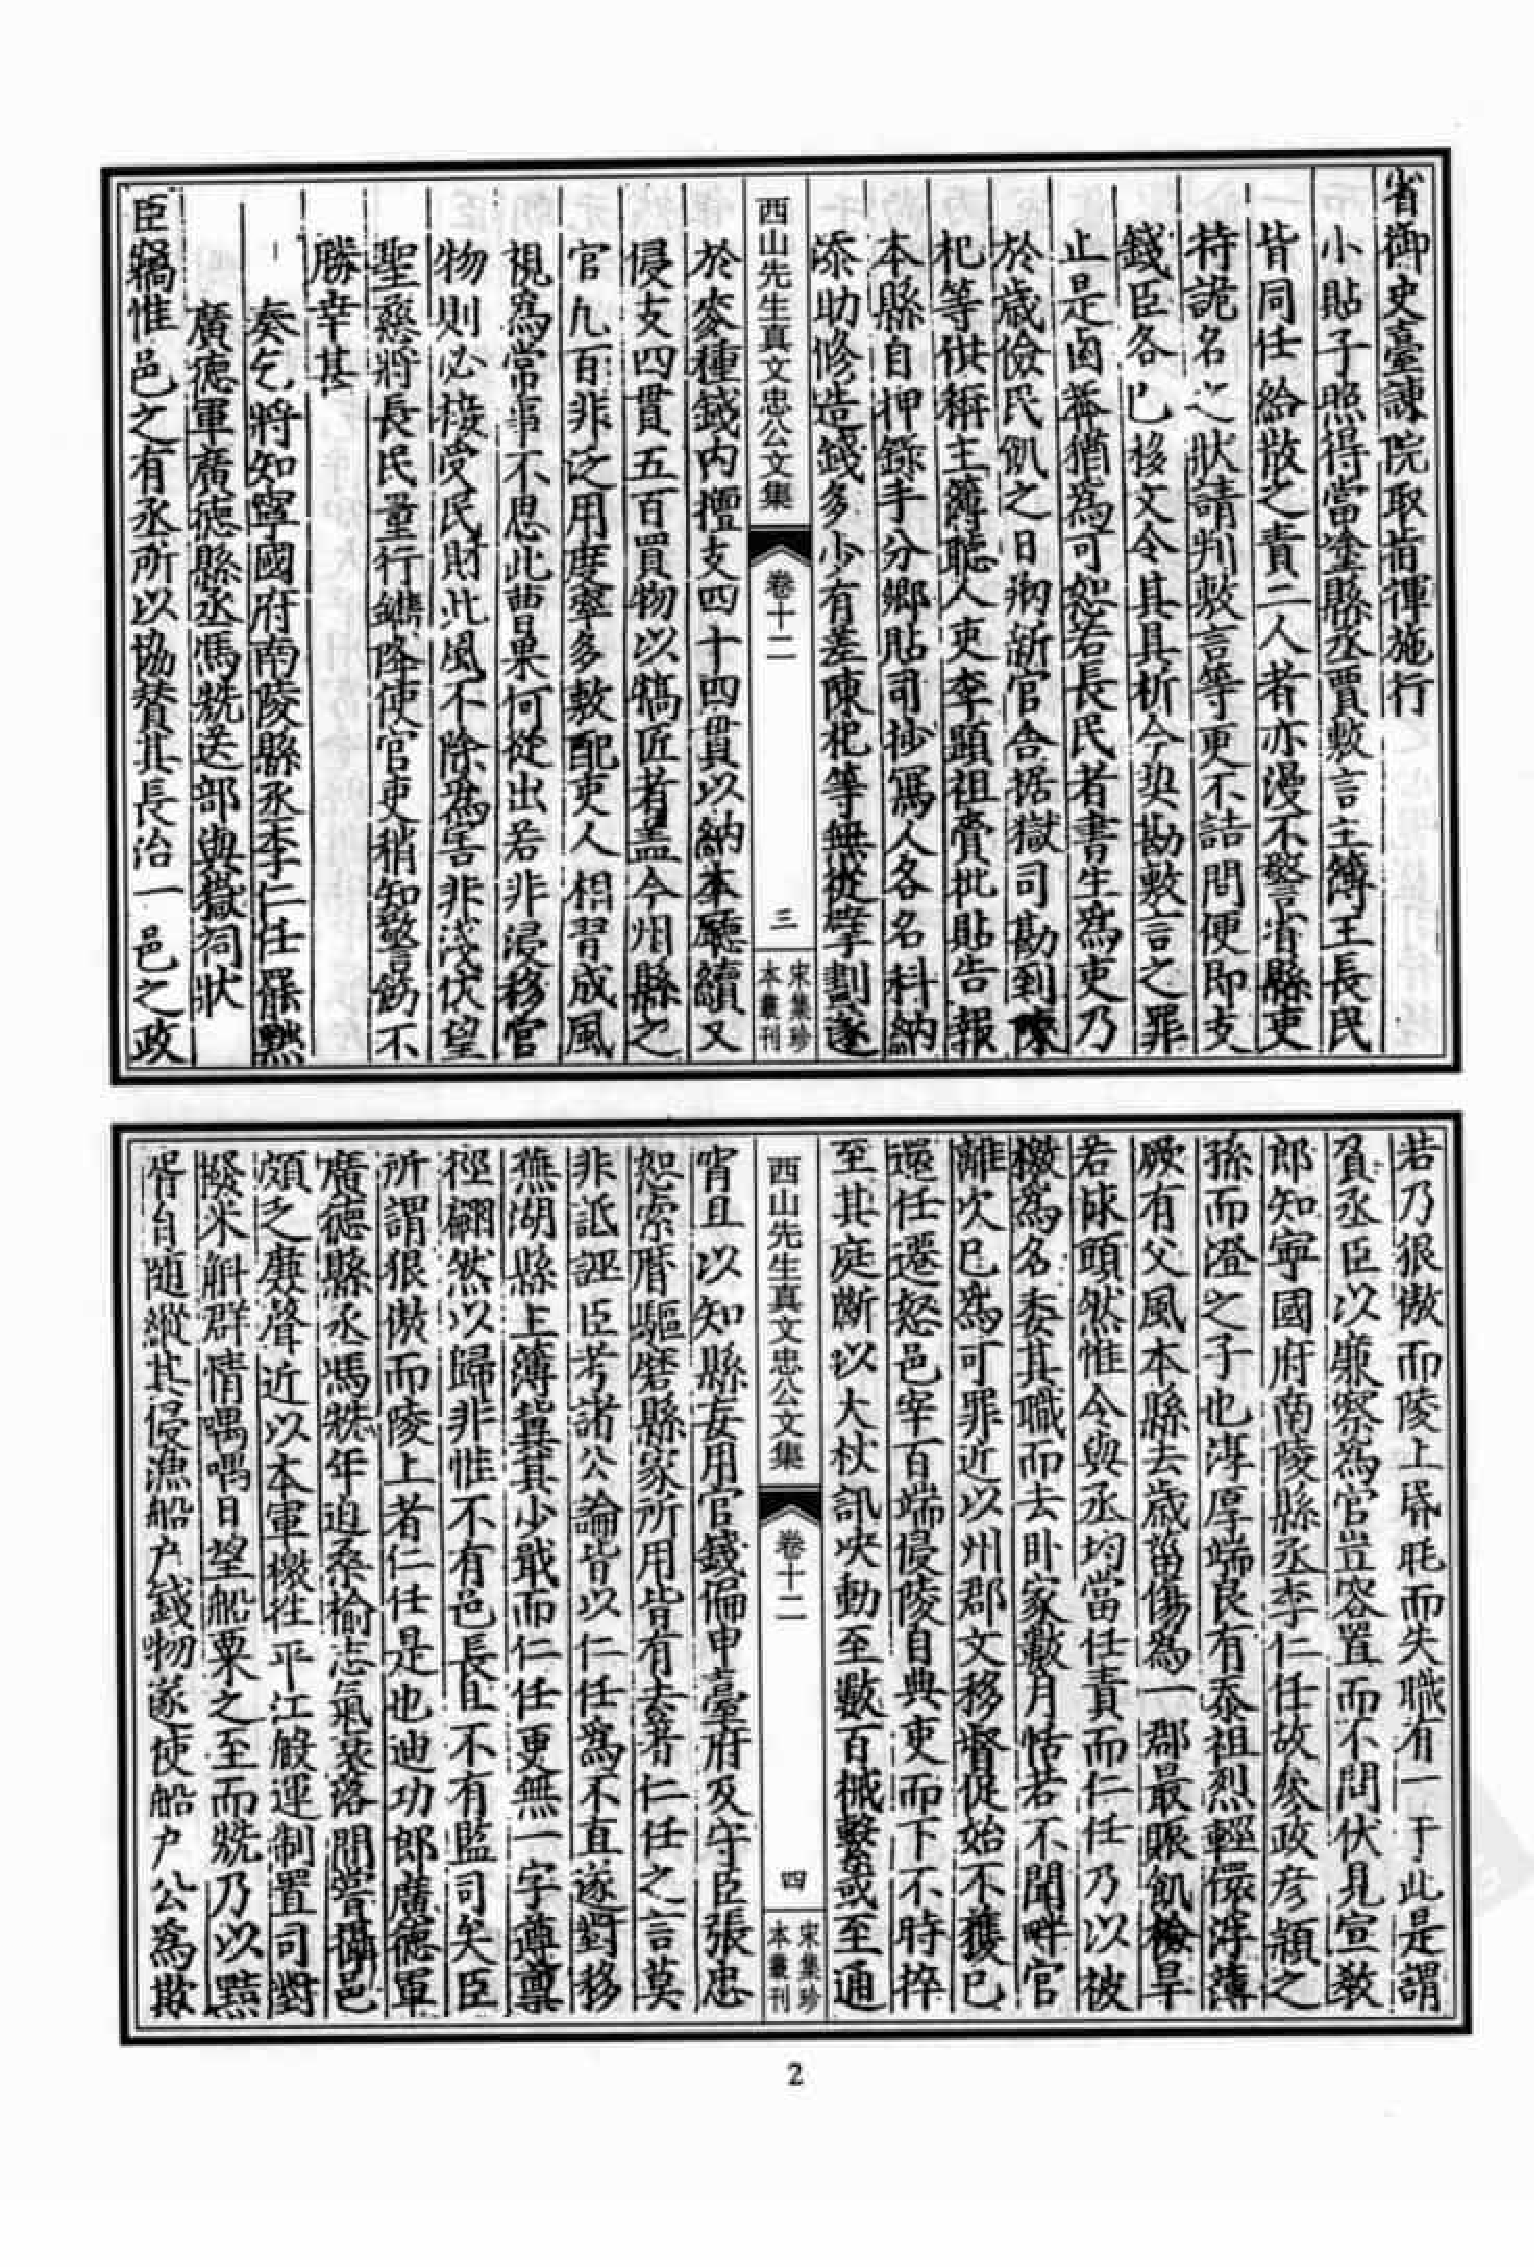 省御史臺諫院取指揮施行
小貼子照得當塗縣丞賈敷言主簿王長民
皆同任給散之責二人者亦漫不警省縣吏
持詭名之狀請判敷言等更不詰問便即支
錢臣各已移文令其具析今契勘敷言之罪
止是鹵莽猶為可恕若長民者書生為吏乃
於歲儉民飢之日刱新官舍据獄司勘到陳
杞等供稱主簿聽人吏李顯祖賫批貼告報
本縣自押錄手分鄉貼司抄寫人各名科納
添助修造錢多少有差陳杞等無從擘劃遂
西山先生真文忠公文集
卷十二
三
宋集珍
本叢刊
於麥種錢內擅支四十四貫以納本廳續又
侵支四貫五百買物以犒匠者蓋今州縣之
官凡百非泛用度率多敷配吏人相習成風
視為常事不思此曹果何從出若非浸移官
物則必接受民財此風不除為害非淺伏望
聖慈將長民量行鐫降使官吏稍知警飭不
勝幸甚
奏乞將知寧國府南陵縣丞李仁任罷黜
廣德軍廣德縣丞馮兟送部與嶽祠狀
臣竊惟邑之有丞所以協贊其長治一邑之政
若乃很傲而陵上昬眊而失職有一于此是謂
負丞臣以廉察為官豈容置而不問伏見宣教
郎知寧國府南陵縣丞李仁任故參政彥穎之
孫而澄之子也淳厚端良有忝祖烈輕儇浮薄
厥有父風本縣去歲菑傷為一郡最賑飢檢旱
若救頭然惟令與丞均當任責而仁任乃以被
檄為名委其職而去卧家數月恬若不聞畔官
離次已為可罪近以州郡文移督促始不獲已
還任遷怒邑宰百端侵陵自典吏而下不時捽
至其庭斷以大杖訊决動至數百械繫或至通
西山先生真文忠公文集
卷十二
四
宋集珍
本叢刊
宵且以知縣妄用官錢徧申臺府及守臣張忠
恕索曆驅磨縣家所用皆有去着仁任之言莫
非詆誣臣考諸公論皆以仁任為不直遂對移
蕪湖縣上簿冀其少戢而仁任更無一字尊稟
徑翩然以歸非惟不有邑長且不有監司矣臣
所謂狠傲而陵上者仁任是也迪功郎廣德軍
廣德縣丞馮兟年迫桑榆志氣衰落間嘗攝邑
頗乏廉聲近以本軍檄往平江般運制置司對
撥米斛群情喁喁日望船粟之至而兟乃以黠
胥自隨縱其侵漁船户錢物遂使船户公為欺